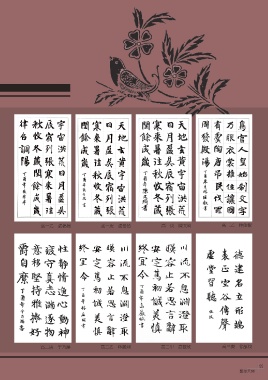 鳥官人皇始制文字
乃服衣裳推位讓國
有虞陶唐吊民伐罪
周發殷湯
天地玄黃宇宙洪荒
日月盈昃辰宿列張
寒來暑往秋收冬藏
閏餘成歲
天地玄黃宇宙洪荒
日月盈昃辰宿列張
寒來暑往秋收冬藏
閏餘成歲
宇宙洪荒日月盈昃
辰宿列張寒來暑往
秋收冬藏閏餘成歲
律呂調陽
德建名立形端
表正空谷傳聲
虛堂習聽
川流不息淵澄取
映容止若思言辭
安定篤初誠美慎
終宜令
川流不息淵澄取
映容止若思言辭
安定篤初誠美慎
終宜令
性靜情逸心動神
疲守真志滿逐物
意移堅持雅操好
爵自縻